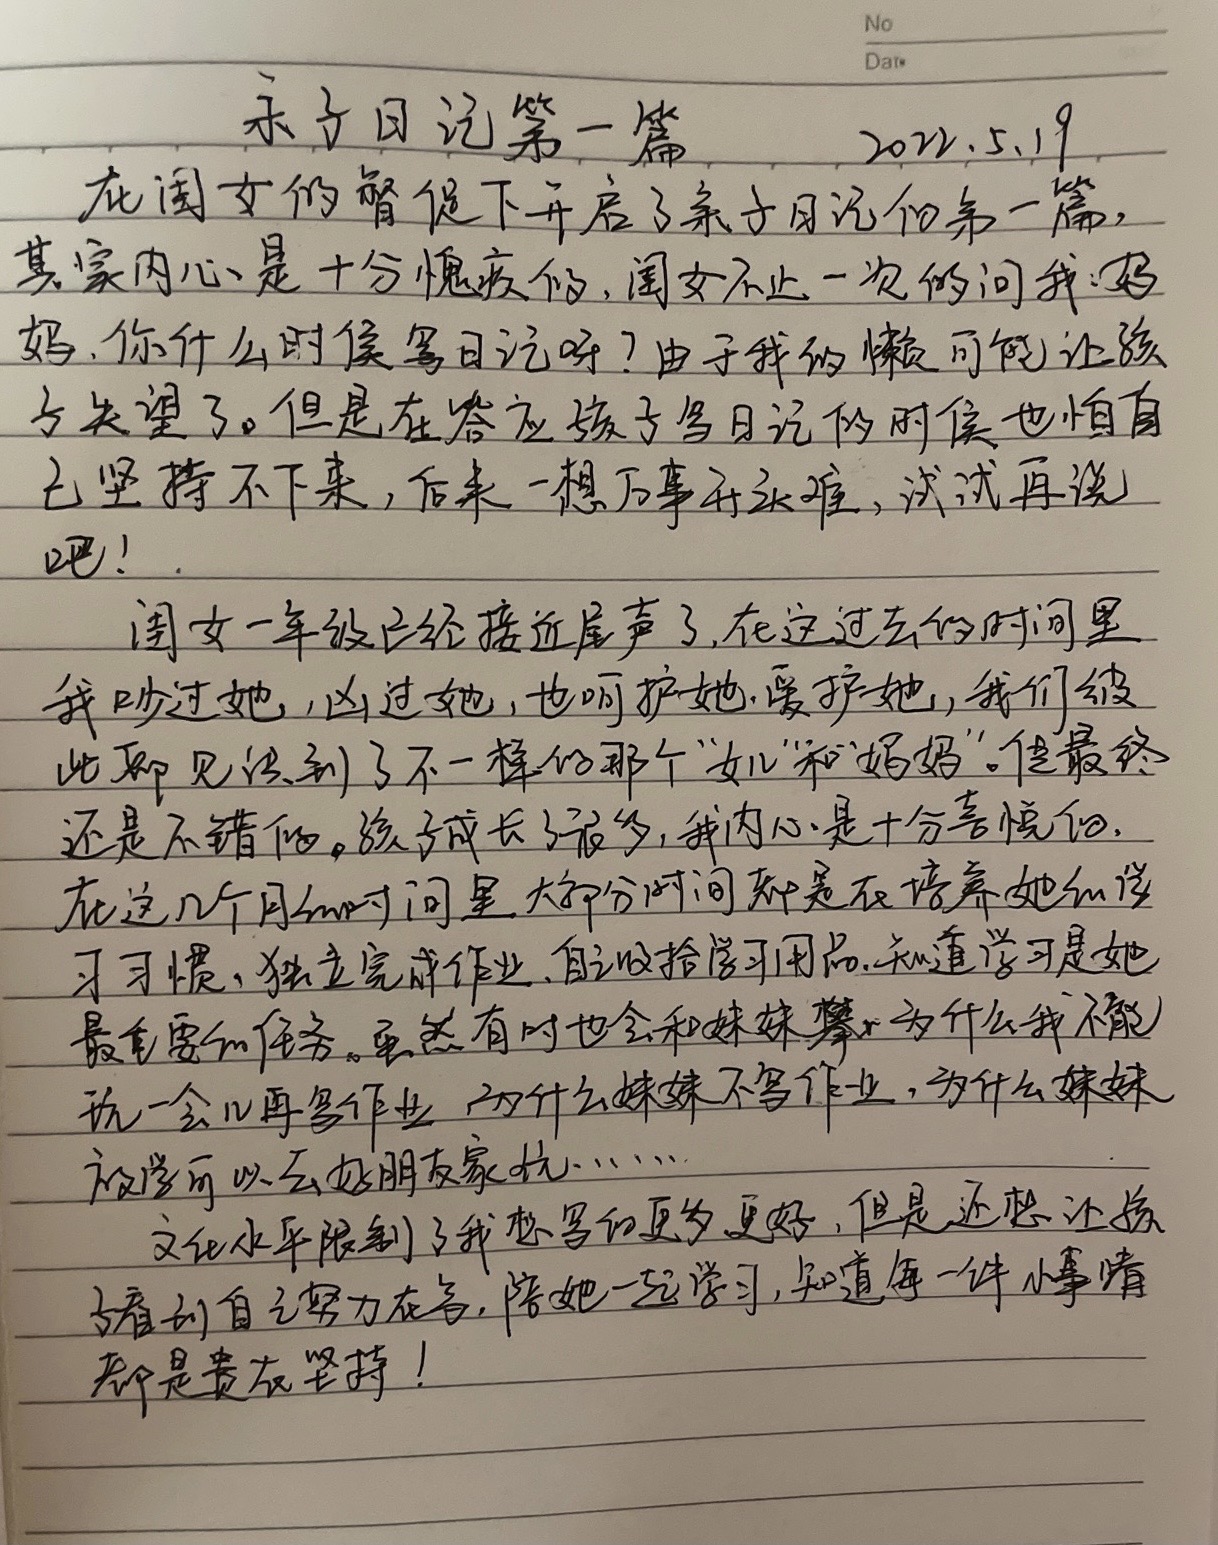 No
Date
亲子日记第一篇 2022.5.19
在闺女的督促下开启了亲子日记的第一篇,
其实内心是十分愧疚的,闺女不止一次的问我:妈
妈,你什么时候写日记呀?由于我的懒可能让孩
子失望了。但是在答应孩子写日记的时候也怕自
己坚持不下来,后来一想万事开头难,试试再说
吧!
闺女一年级已经接近尾声了,在这过去的时间里
我吵过她,凶过她,也呵护她.爱护她,我们彼
此都见识到了不一样的那个“女儿”和“妈妈”。但最终
还是不错的。孩子成长了很多,我内心是十分喜悦的.
在这几个月的时间里大部分时间都是在培养她的学
习习惯、独立完成作业、自己收拾学习用品.知道学习是她
最重要的任务。虽然有时也会和妹妹攀比为什么我不能
玩一会儿再写作业,为什么妹妹不写作业,为什么妹妹
放学可以去好朋友家玩……
文化水平限制了我想写的更多更好,但是还想让孩
子看到自己努力在写,陪她一起学习,知道每一件小事情
都是贵在坚持!